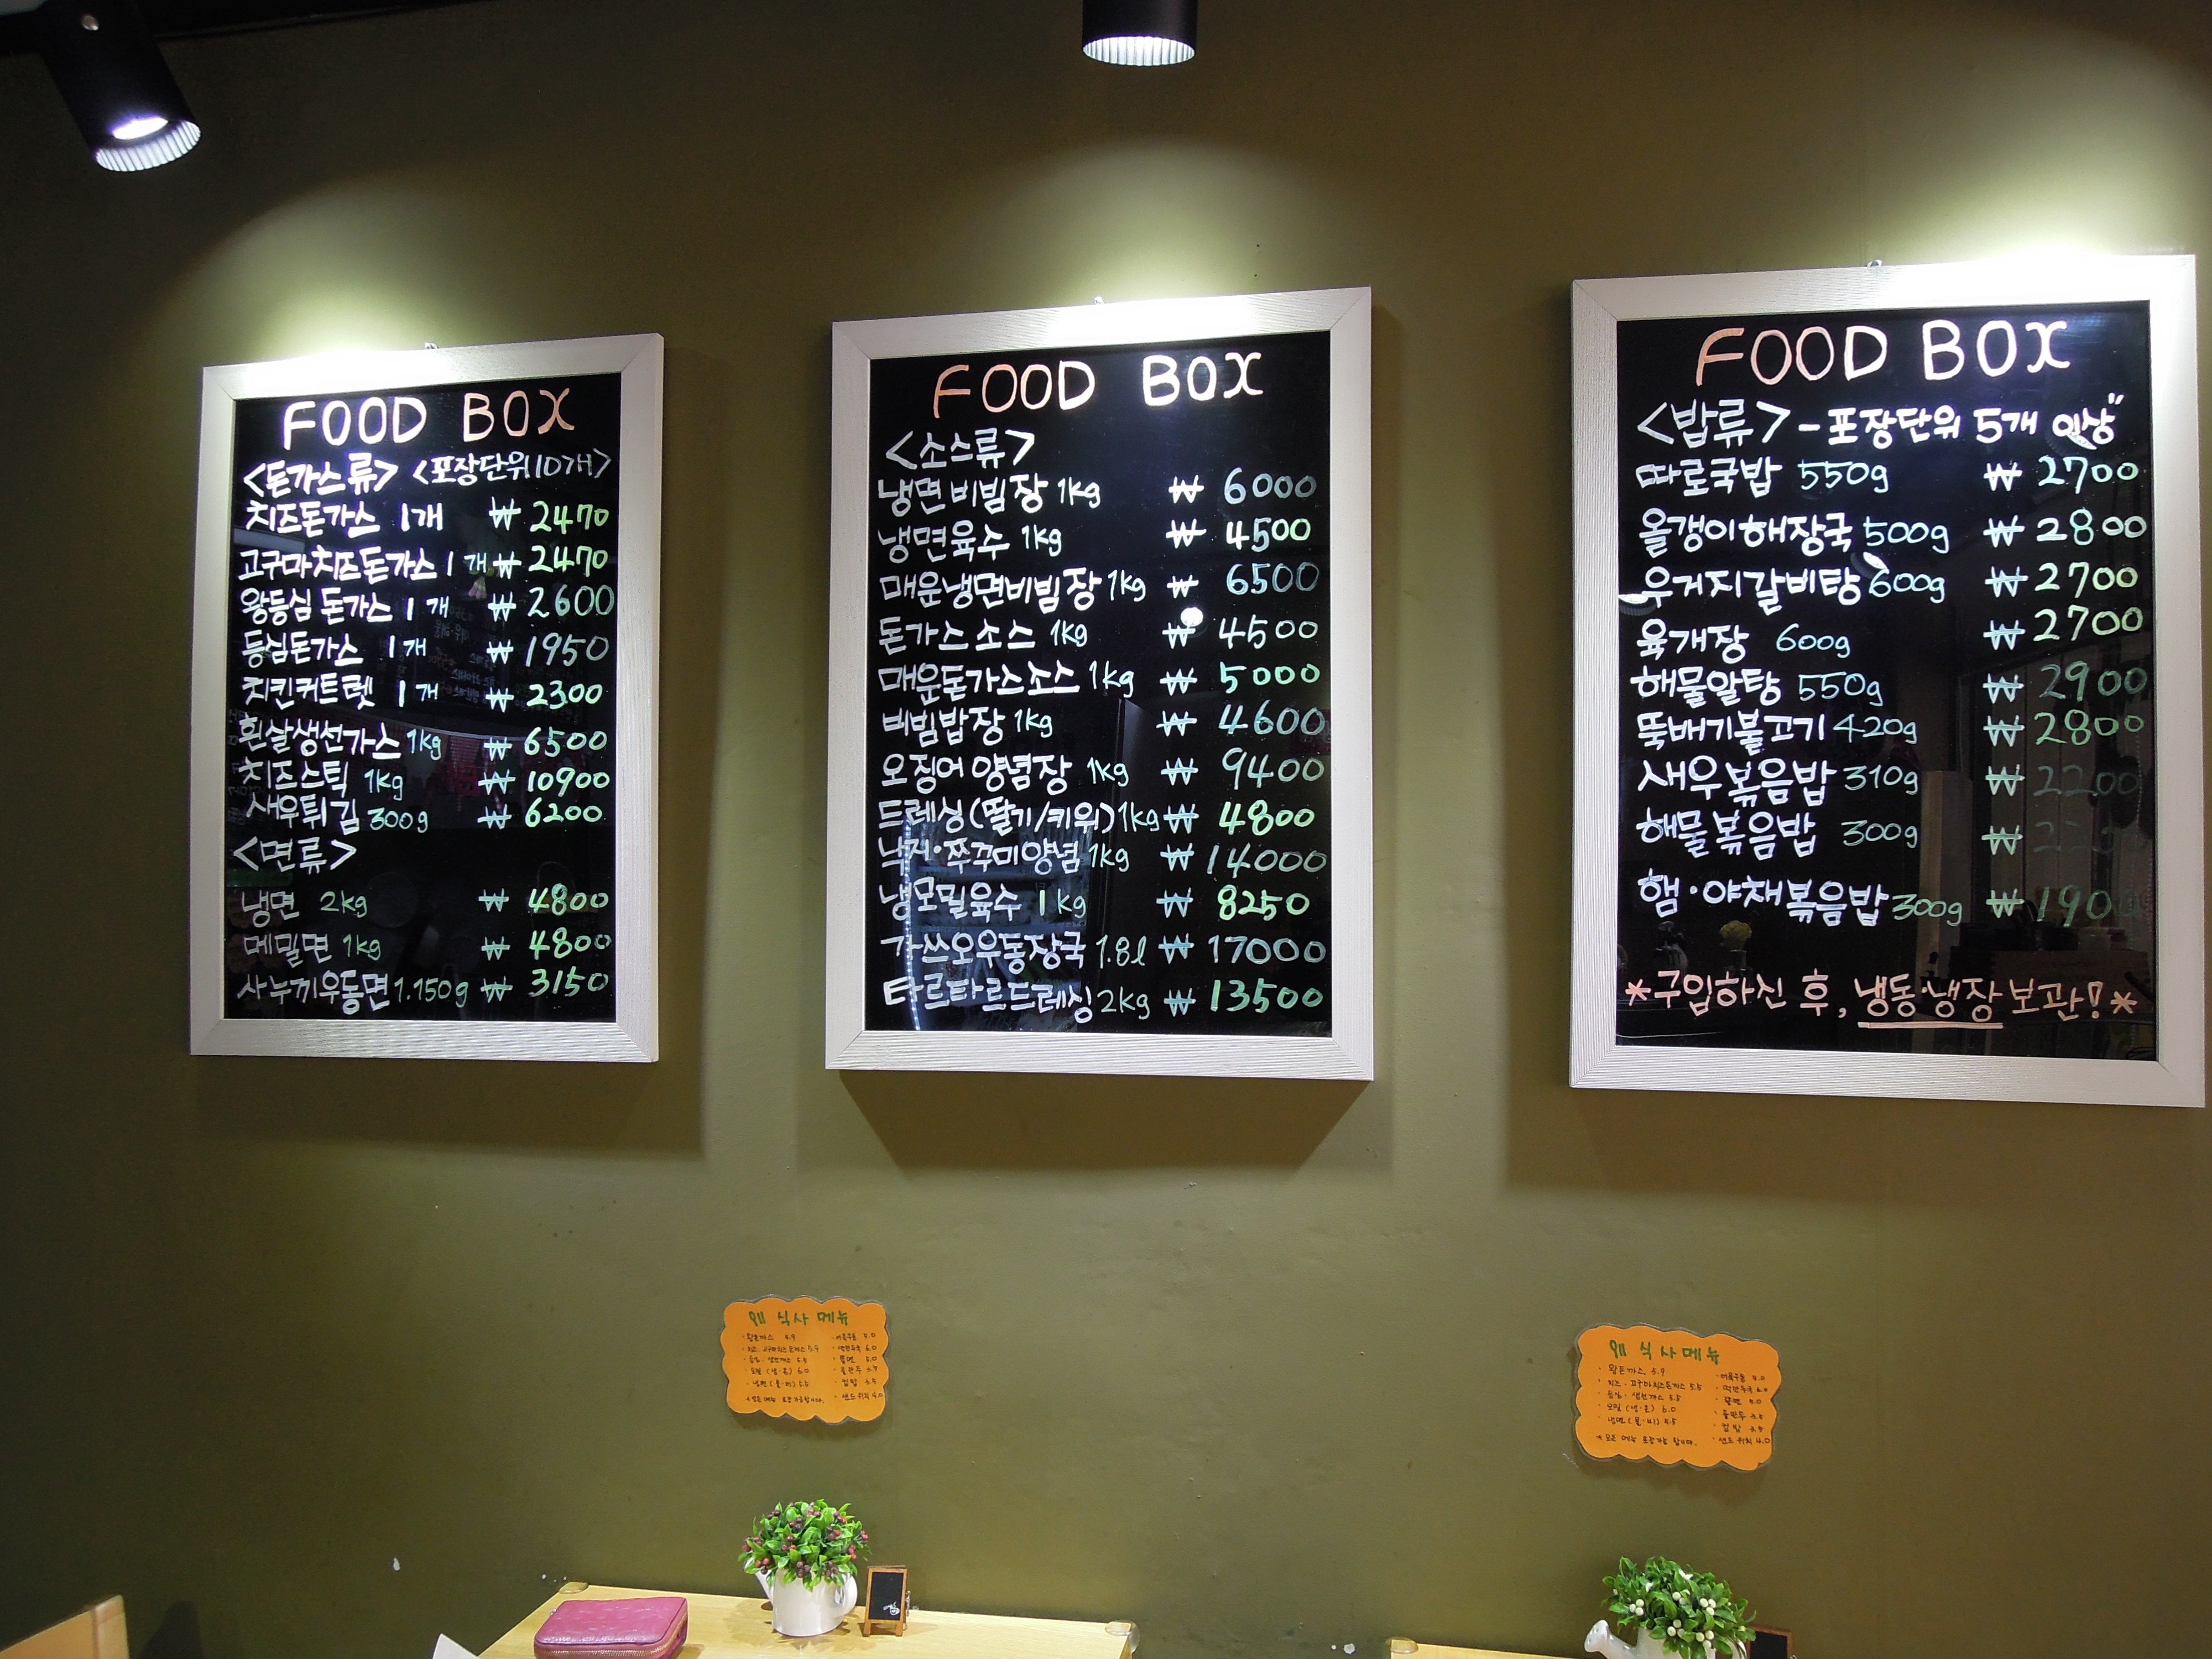 FOOD BOX
<돈가스류> <포장단위10개>
치즈돈가스 1개 ₩ 2470
고구마치즈돈가스 1개 ₩ 2470
왕등심 돈가스 1개 ₩ 2600
등심돈가스 1개 ₩ 1950
치킨커트렛 1개 ₩ 2300
흰살생선가스 1kg ₩ 6500
치즈스틱 1kg ₩ 10900
새우튀김 300g ₩ 6200
<면류>
냉면 2kg ₩ 4800
메밀면 1kg ₩ 4800
사누끼우동면 1.150g ₩ 3150
FOOD BOX
<소스류>
냉면 비빔장 1kg ₩ 6000
냉면육수 1kg ₩ 4500
매운냉면비빔장 1kg ₩ 6500
돈가스 소스 1kg ₩ 4500
매운돈가스소스 1kg ₩ 5000
비빔밥장 1kg ₩ 4600
오징어 양념장 1kg ₩ 9400
드레싱(딸기/키위) 1kg ₩ 4800
낙지·쭈꾸미양념 1kg ₩ 14000
냉모밀육수 1kg ₩ 8250
가쓰오우동장국 1.8l ₩ 17000
타르타르드레싱 2kg ₩ 13500
FOOD BOX
<밥류> - 포장단위 5개 이상"
따로국밥 550g ₩ 2700
올갱이해장국 500g ₩ 2800
우거지갈비탕 600g ₩ 2700
육개장 600g ₩ 2700
해물알탕 550g ₩ 2900
뚝배기불고기 420g ₩ 2800
새우볶음밥 310g ₩ 2200
해물볶음밥 300g ₩
햄·야채볶음밥 300g ₩ 1900
*구입하신 후, 냉동·냉장 보관!*
식사 메뉴
왕돈까스 5.9
모밀 (냉·온) 6.0
샌드위치 4.0
식사메뉴
· 왕돈까스 5.9
· 치즈·고구마치즈돈까스 5.5
· 등심·생선까스 5.5
· 모밀 (냉·온) 6.0
· 냉면 (물·비) 5.5
* 모든 메뉴 포장가능 합니다.
· 쫄면 5.0
· 샌드위치 4.0